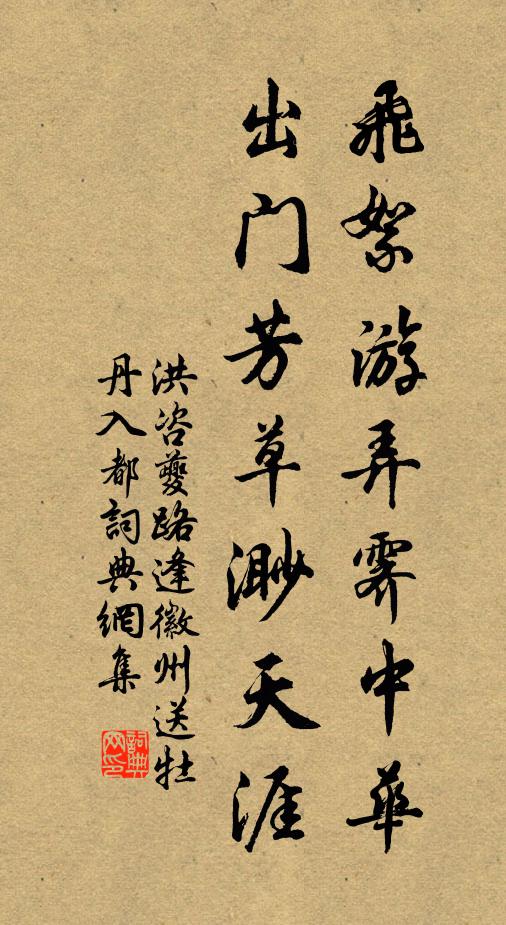 飛絮游弄霽中華
出门芳草渺天涯
洪咨夔路逢徽州送牡
丹入都詞典網集
詞典网印